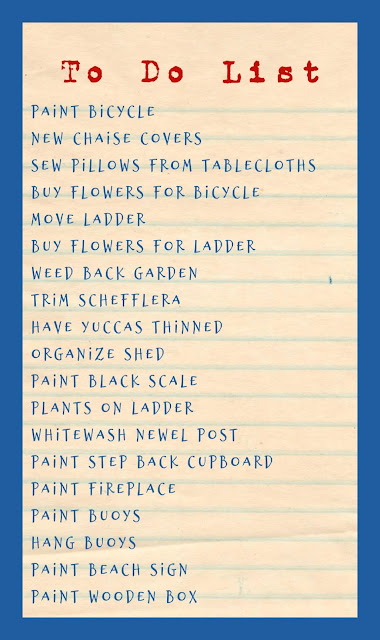 To Do List
PAiNT BiCYCLE
NEW CHAiSE COVERS
SEW PiLLOWS FROM TABLECLOTHS
BUY FLOWERS FOR BiCYCLE
MOVE LADDER
BUY FLOWERS FOR LADDER
WEED BACK GARDEN
TRiM SCHEFFLERA
HAVE YUCCAS THiNNED
ORGANiZE SHED
PAiNT BLACK SCALE
PLANTS ON LADDER
WHiTEWASH NEWEL POST
PAiNT STEP BACK CUPBOARD
PAiNT FiREPLACE
PAiNT BUOYS
HANG BUOYS
PAiNT BEACH SiGN
PAiNT WOODEN BOX